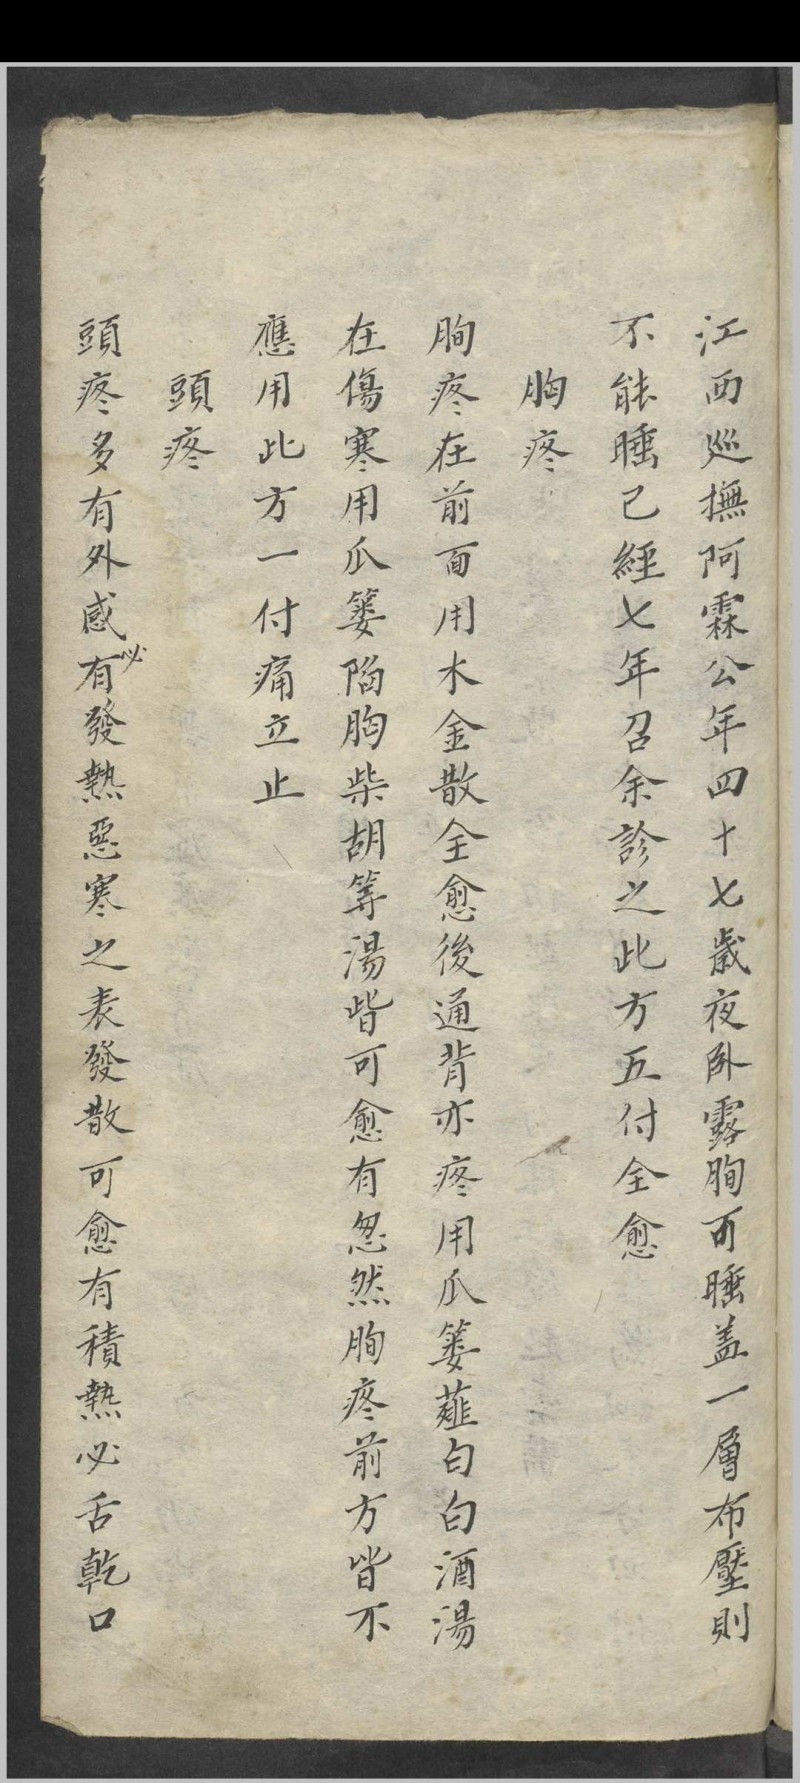 江西巡撫阿霖公年四十七歲夜卧露胸可睡盖一層布壓則
不能睡已經七年召余診之此方五付全愈
胸疼
胸疼在前面用木金散全愈後通背亦疼用瓜蔞薤白白酒湯
在傷寒用瓜蔞陷胸柴胡等湯皆可愈有忽然胸疼前方皆不
應用此方一付痛立止
頭疼
頭疼多有外感必有發熱惡寒之表發散可愈有積熱必舌乾口